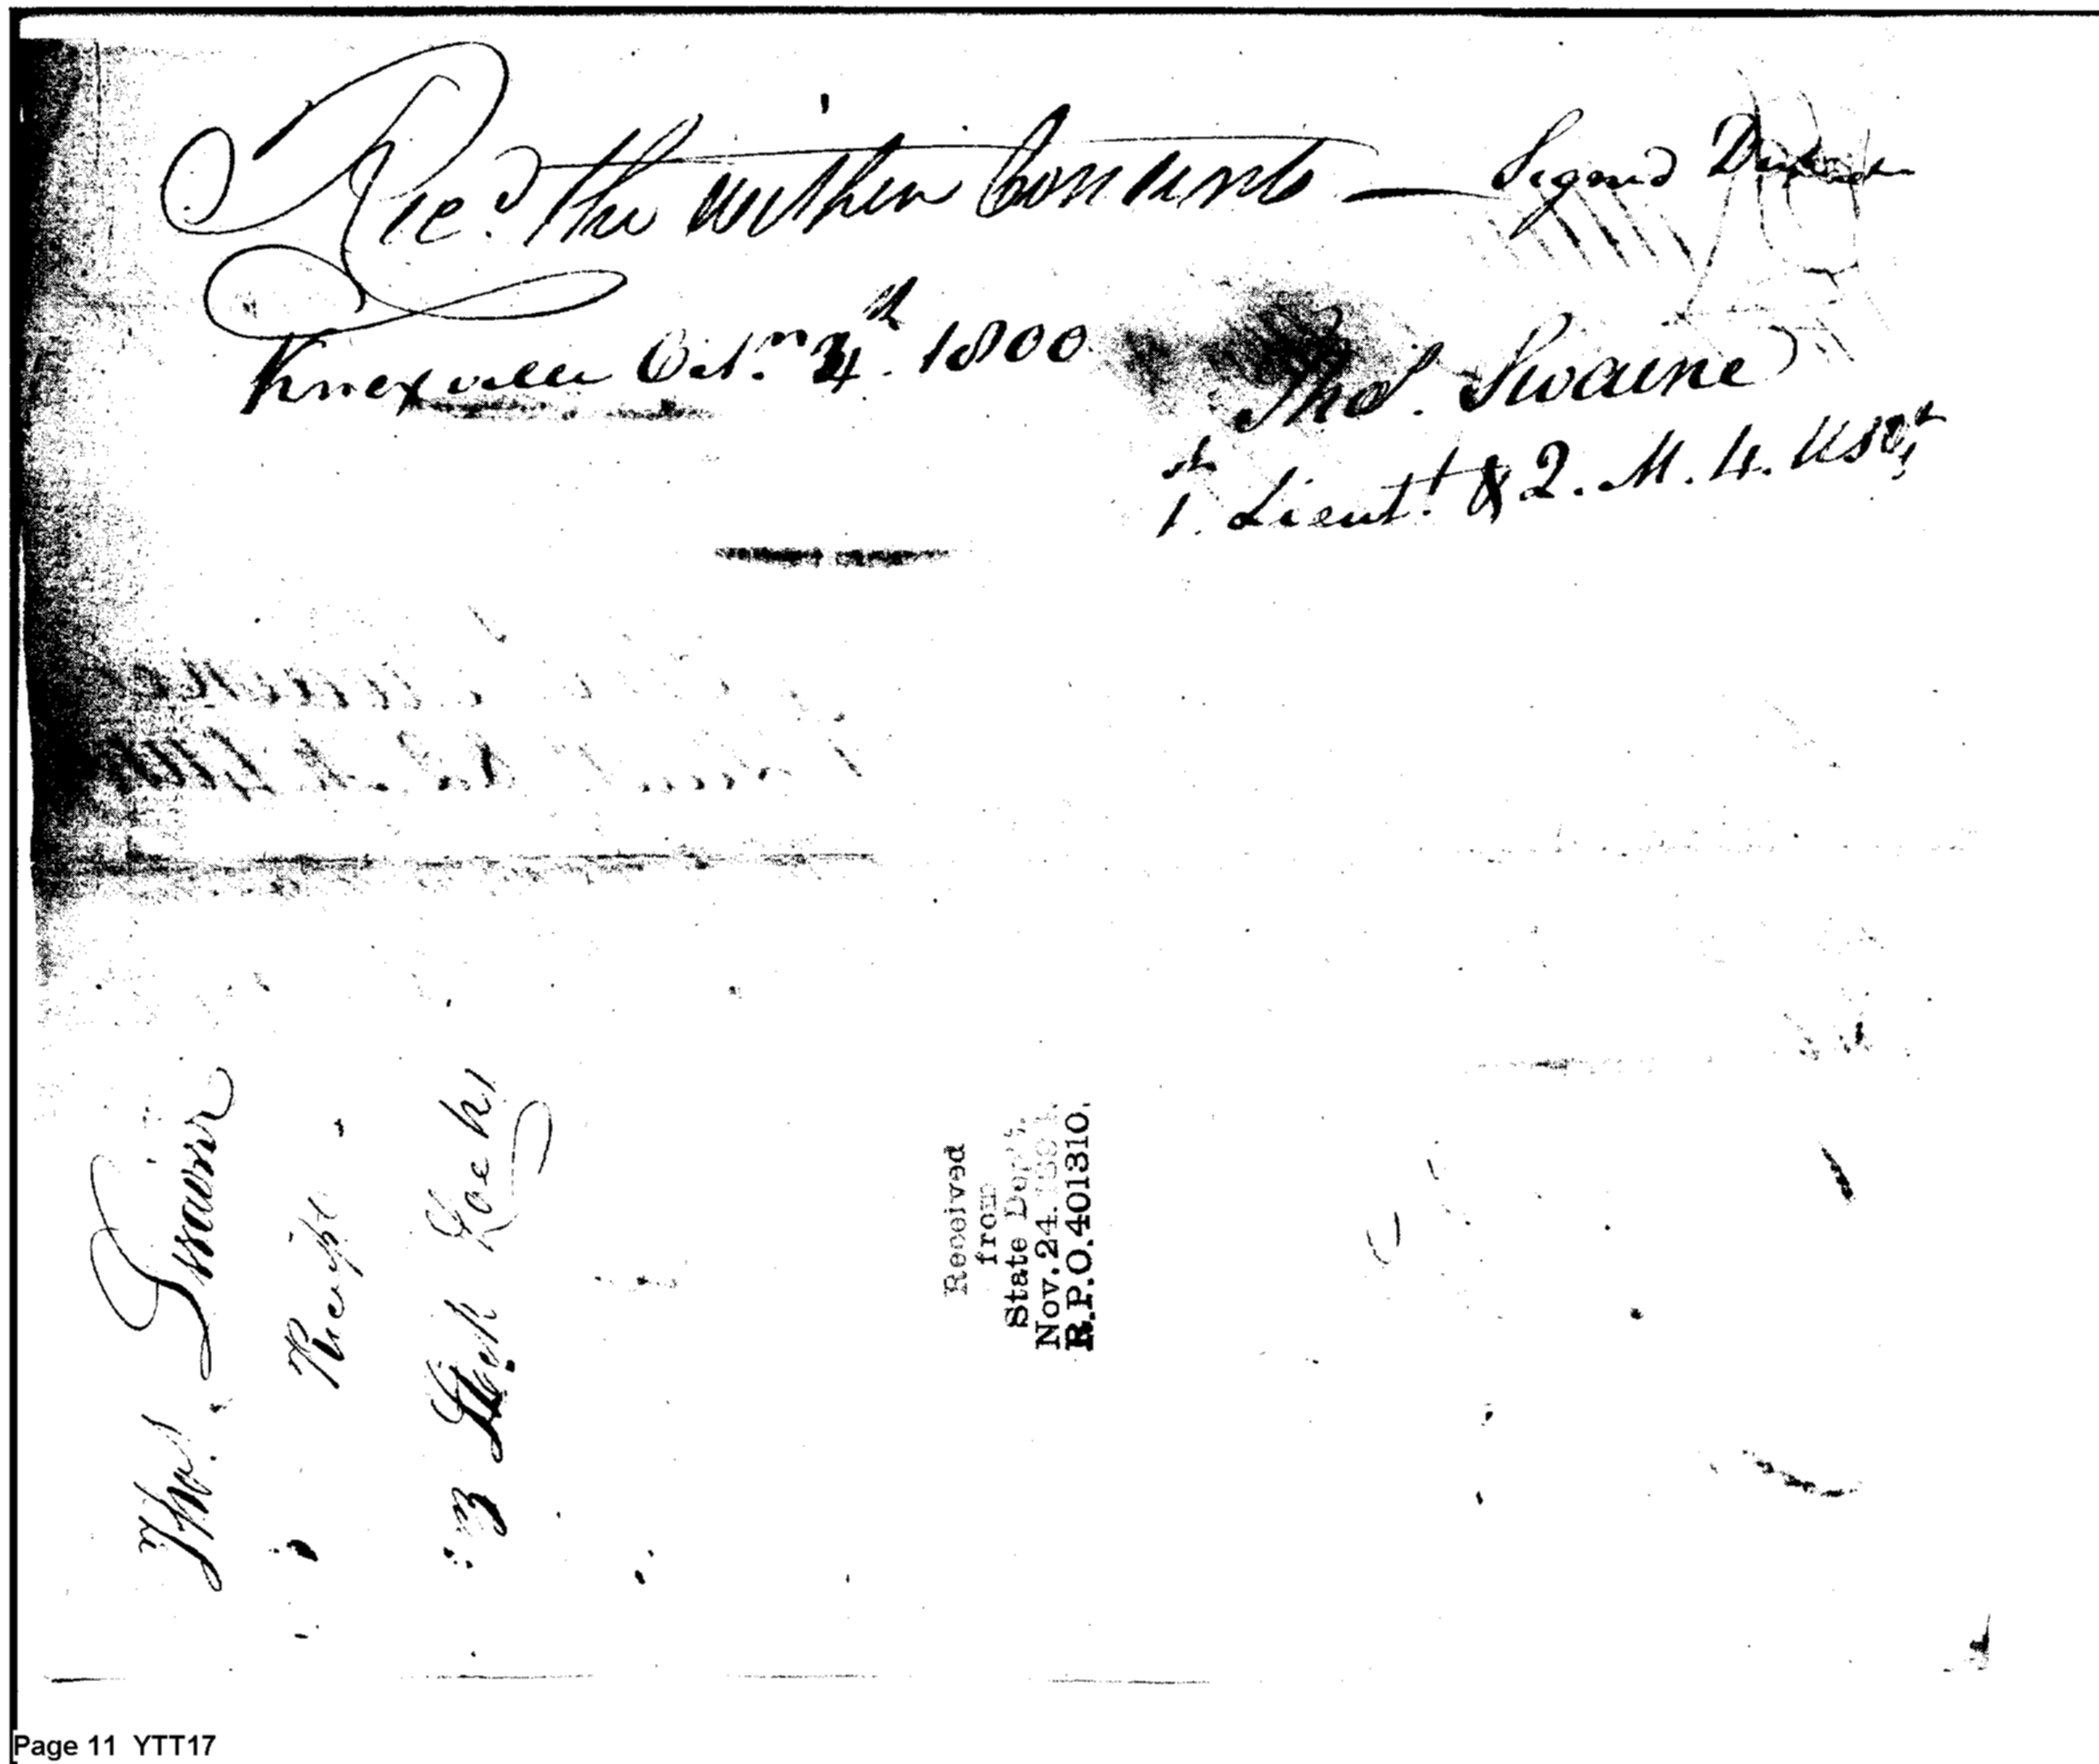 Rec.d the within Contents — Signed Duplicates
Knoxville Oct.r 4th. 1800
Thos. Swaine
1st. Lieut.t & Q. M. 4. USRt
Thos. Swaine
Receipt
3 Stock Locks
Received
from
State Dep't.
Nov. 24. 1894.
R.P.O. 401310.
Page 11 YTT17